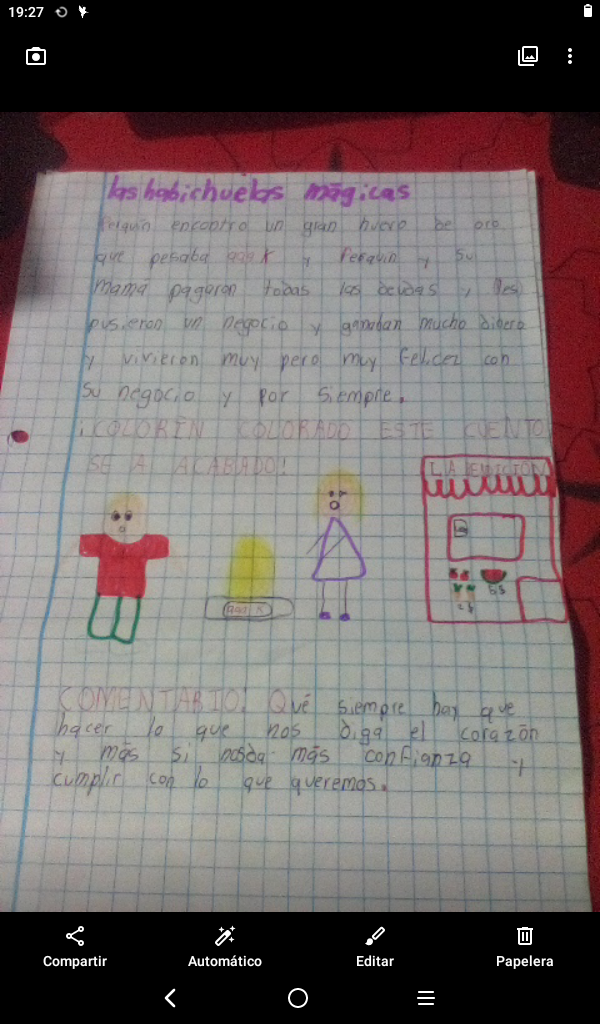 19:27
las habichuelas mágicas
Perquin encontro un gran huevo de oro
que pesaba 999 K y Perquin y su
mama pagaron todas las deudas y des
pusieron un negocio y ganaban mucho dinero
y vivieron muy pero muy Felicez con
su negocio y por siempre.
¡COLORÍN COLORADO ESTE CUENTO
SE A ACABADO!
LA EDICION
999 K
2$ 5$
COMENTARIO! Qué siempre hay que
hacer lo que nos diga el corazón
y más si nosda más confianza y
cumplir con lo que queremos.
Compartir
Automático
Editar
Papelera